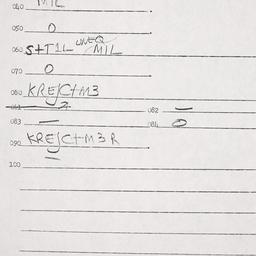 040 MIL
050 O
UNEQ
060 S+T1L MIL
070 O
080 KREJC+M3
081 2 082 —
083 — 084 O
090 KREJC+M3R
100